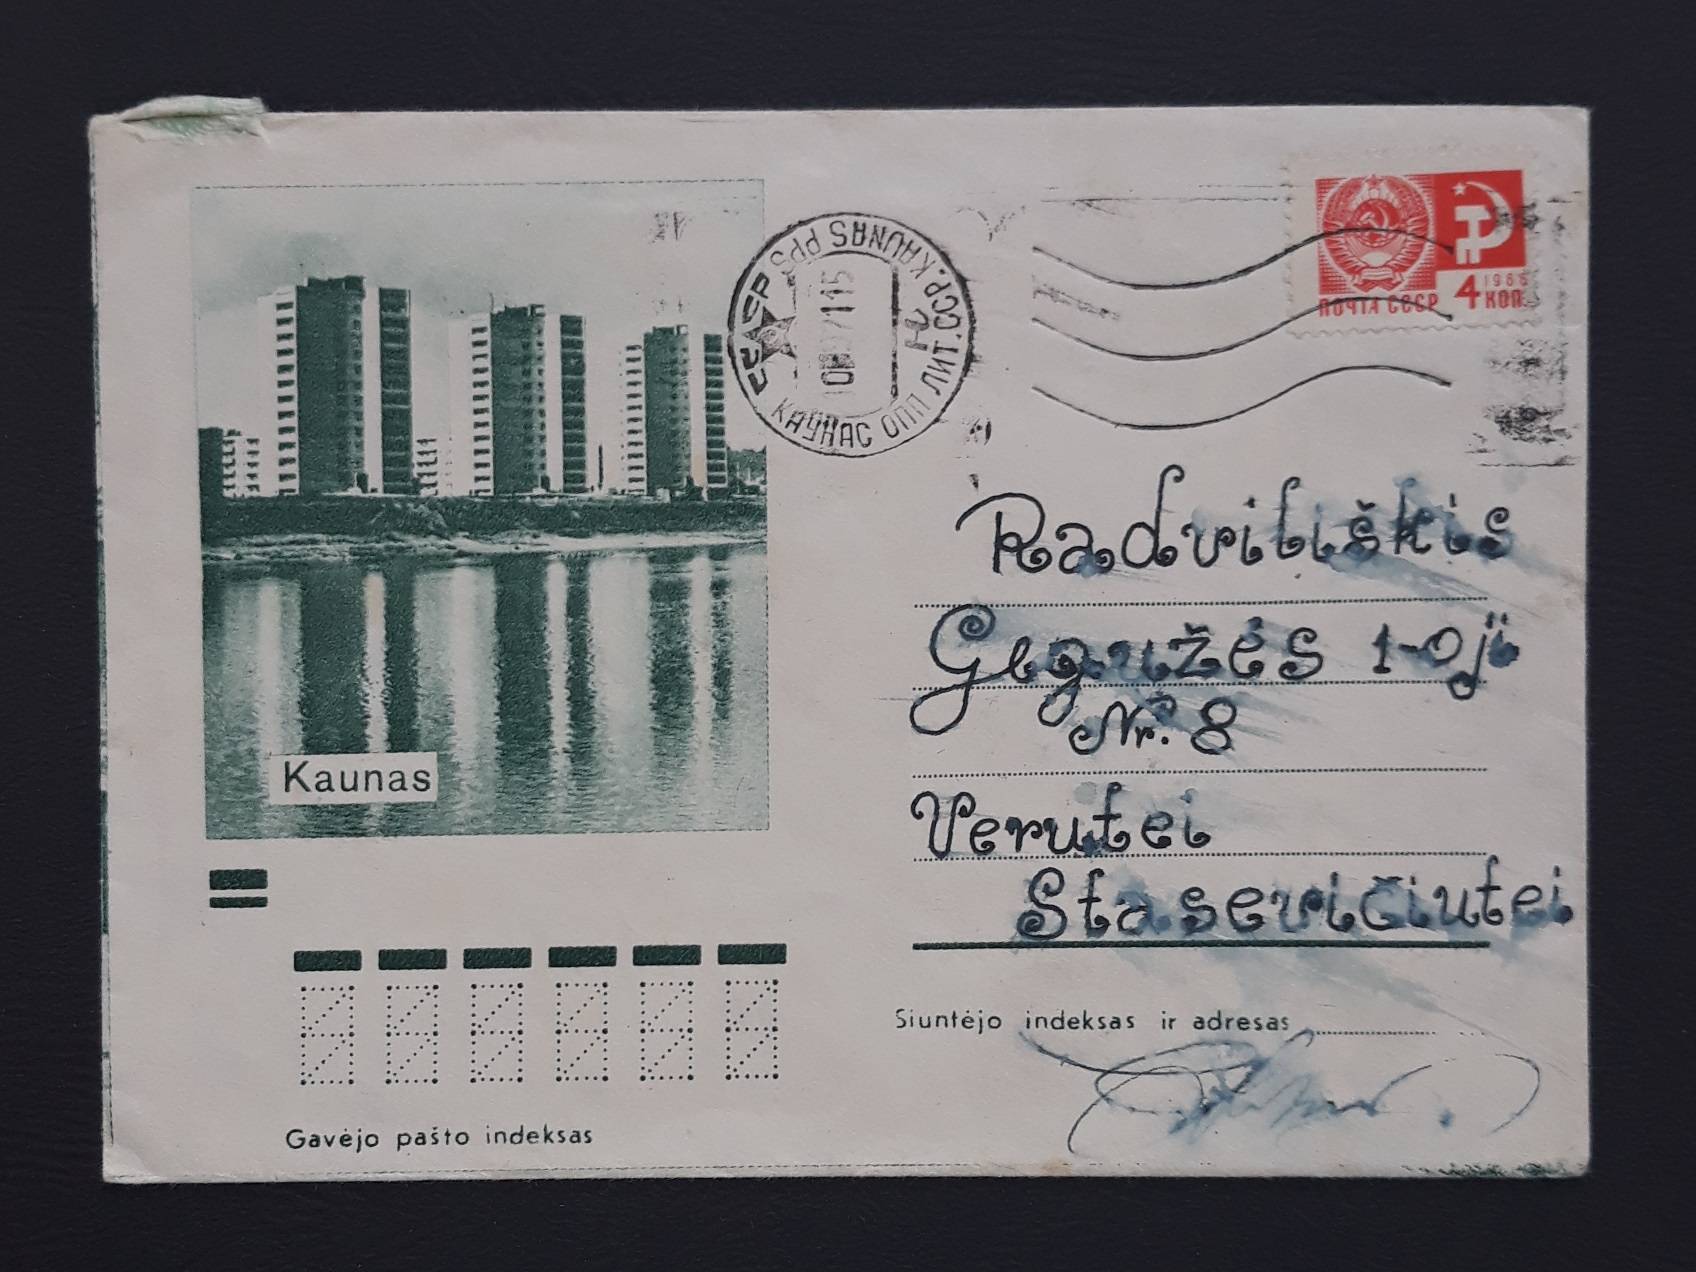 ПОЧТА СССР
1966
4 КОП
СССР
KAUNAS PPS
КАУНАС ОПП ЛИТ.ССР.
Radviliškis
Gegužės 1-oji
Nr. 8
Verutei
Stasevičiutei
Kaunas
Siuntėjo indeksas ir adresas
Gavėjo pašto indeksas